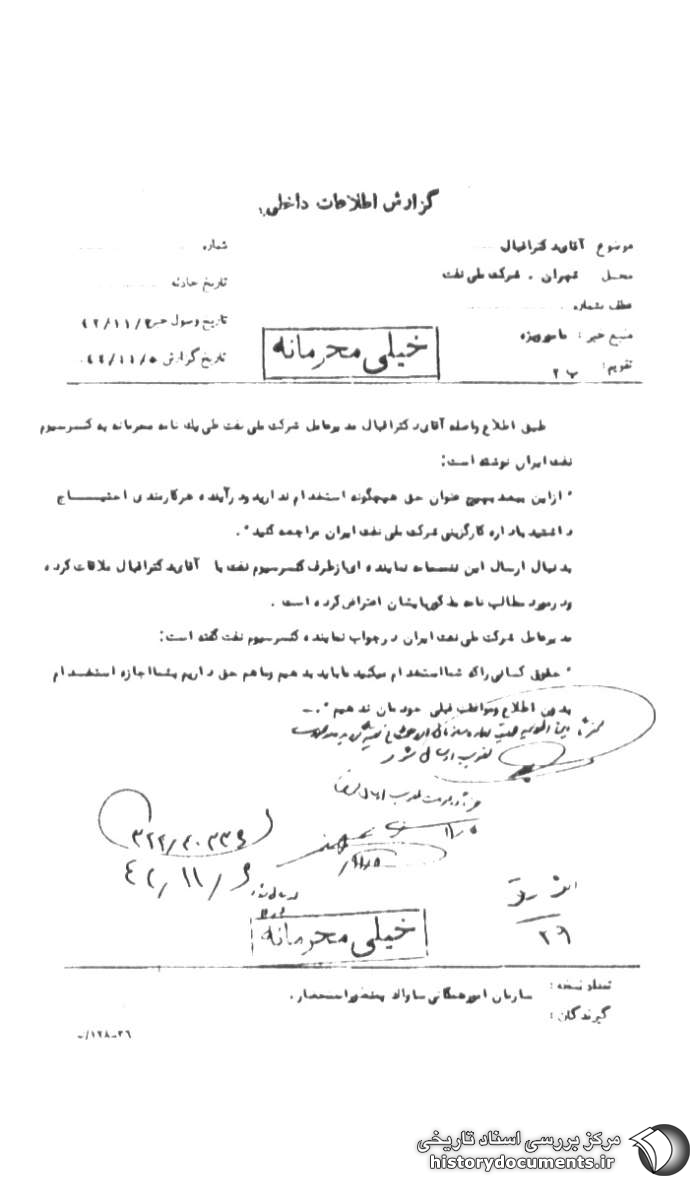 گزارش اطلاعات داخلی
موضوع آقای دکتر اقبال
شماره
محل تهران . شرکت ملی نفت
تاریخ حادثه
عطف بشماره
تاریخ وصول خبر ۴۲/۱۱/۲
منبع خبر : مامور ویژه
خیلی محرمانه
تاریخ گزارش ۴۲/۱۱/۵
تقویم : ب ۲
طبق اطلاع واصله آقای دکتر اقبال مدیرعامل شرکت ملی نفت طی یک نامه محرمانه به کنسرسیوم
نفت ایران نوشته است :
" از این ببعد بهیچ عنوان حق هیچگونه استخدام ندارید و در آینده هر کارمندی احتیــــاج
داشتید باداره کارگزینی شرکت ملی نفت ایران مراجعه کنید " .
بدنبال ارسال این نامه نماینده ای از طرف کنسرسیوم نفت با آقای دکتر اقبال ملاقات کرده
و در مورد مطالب نامه مذکور بایشان اعتراض کرده است .
مدیرعامل شرکت ملی نفت ایران در جواب نماینده کنسرسیوم نفت گفته است :
" حقوق کسانی را که شما استخدام میکنید ما باید بدهیم و ما هم حق داریم بشما اجازه استخــدام
بدون اطلاع و موافقت قبلی خودمان ندهیم " .ـ
۳۲۲/۴۰۳۳۶
۴۲/۱۱/۶
۱۱/۵
۲۹
خیلی محرمانه
تعداد نسخه :
سازمان امور همگانی ساواک بمنظور استحضار .
گیرندگان :
۳۶-۱۲۸/-
مرکز بررسی اسناد تاریخی
historydocuments.ir